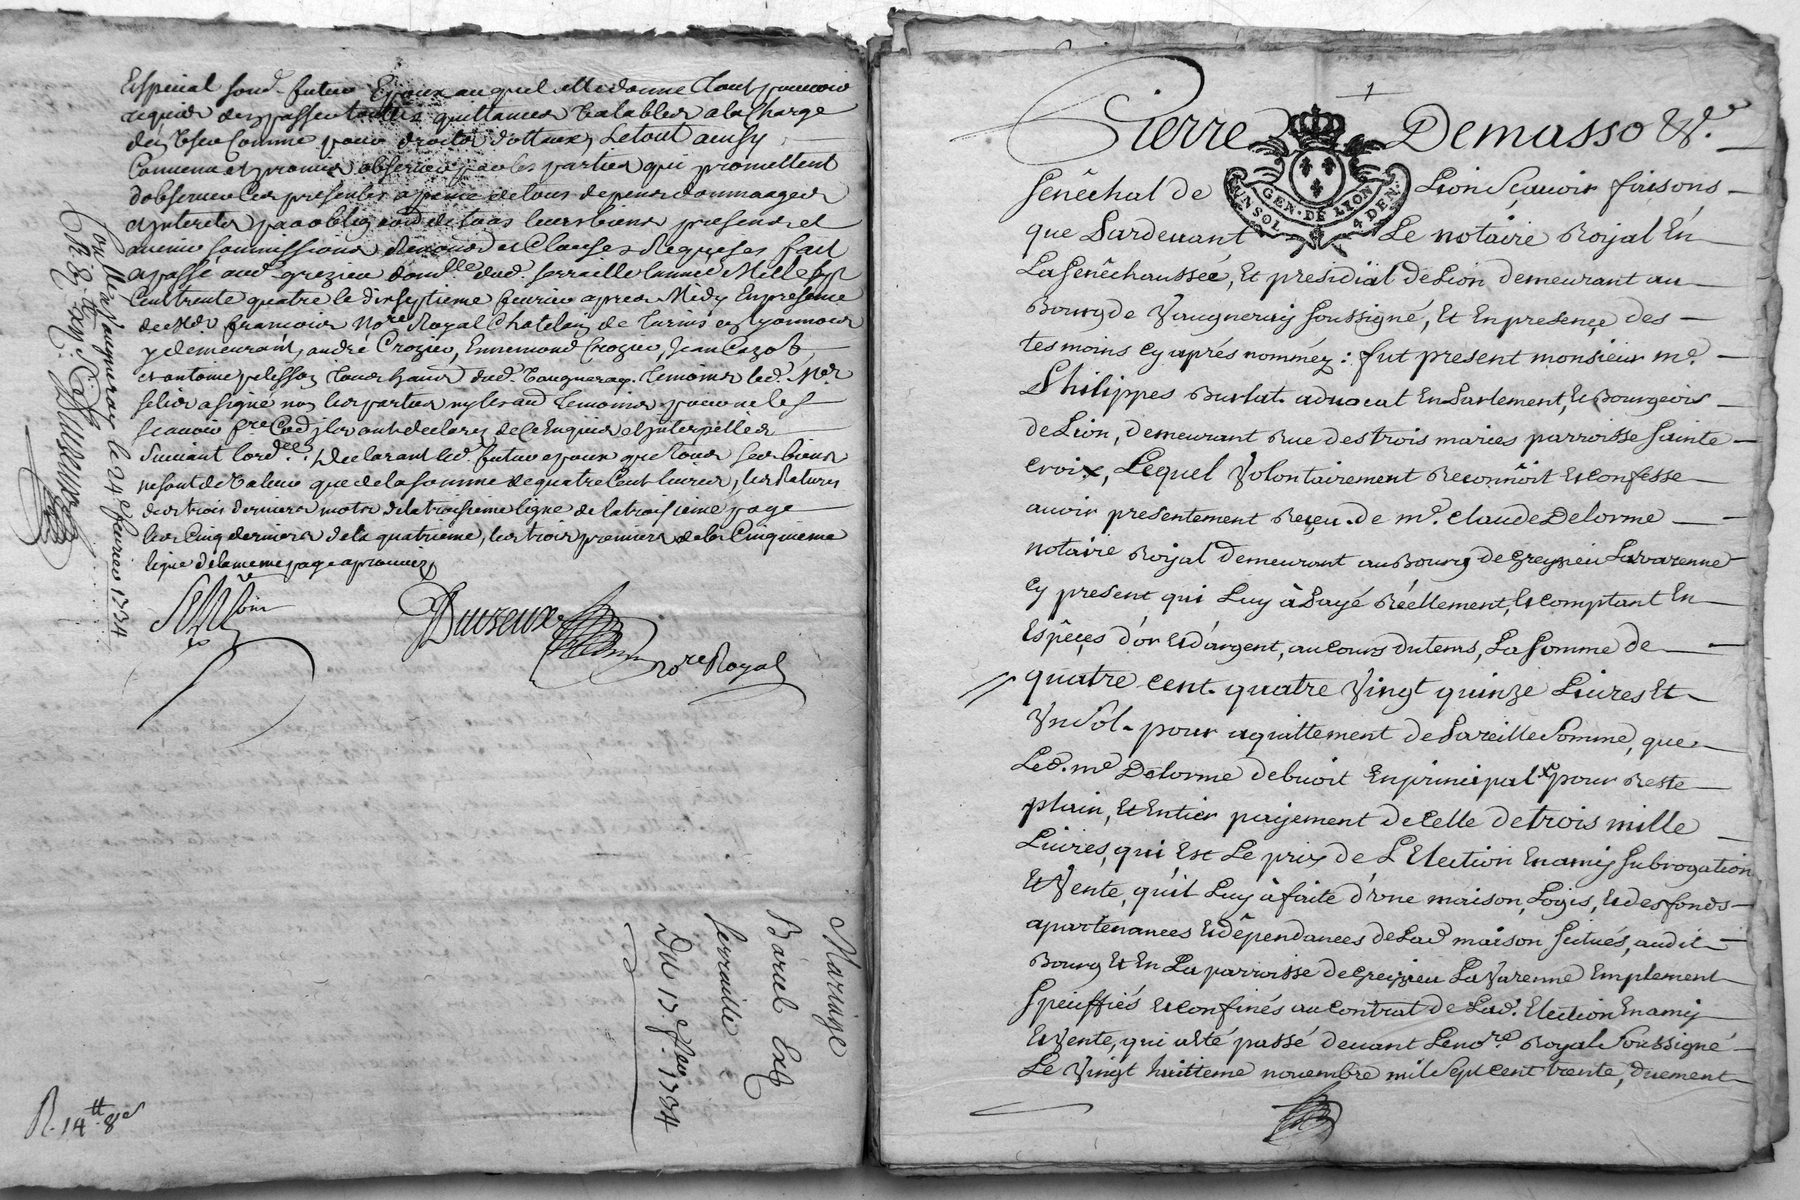 Espécial sond. futur Epoux auquel elle donne tout pouvoir
requis de passer toutes quittances valables a la charge
Convenu et promis observer par les parties qui promettent
d'observer les presentes a peine de tous depens dommages
et interets par oblig.on de tous leurs biens presens et
avenir soumissions Renond. et Clauses Requises fait
a passé aud. grezieu domlle dud. serraille l'année Mille sept
Cent trente quatre le dixseptieme fevrier apres Midy En presence
de Mr francois Nore Royal Chatelain de
y demeurant, andré Crozier, Ennemond Crozier, Jean
et antoine plesson tous habit. dud. Vaugneray temoins led. Mr
a signé non les parties ny lesd. temoins pour ne le
scavoir
Suivant lord.ce. Declarant led. futur epoux que tous ses biens
ne sont de valeur que de la somme de quatre Cent livres, les Ratures
des trois derniers mots de la troisieme ligne de la troisieme page
les Cinq derniers de la quatrieme, les trois premiers de la Cinquieme
ligne de la meme page aprouvez
Duvseux
nore Royal
Con.llé a Vaugneray le 24e fevrier 1734
Mariage
Barcel Et
serraille
Du 17e fevr. 1734
R. 14tt 8s
1
Pierre Demasso Er.
GEN. DE LION
UN SOL 4 DEN
Senêchal de Lion Sçavoir faisons
que Pardevant Le notaire Royal En
La Senêchaussée, Et presidïal de Lion demeurant au
Bourg de Vaugneray soussigné, Et En presençe des
tesmoins Cy aprés nomméz : fut present monsieur me.
Philippes Burlat advocat En Parlement, Et Bourgeois
de Lion, demeurant Rue des trois maries parroisse sainte
Croix, Lequel Volontairement Reconnôit Et confesse
auoir presentement Reçeu de me. Claude Delorme
notaire Royal demeurant au Bourg de Greyzieu Lavarenne
Cy present qui Luy à Payé Réellement, Et comptant En
Espéçes d'or Et d'argent, au cours du tems, La somme de
quatre cent quatre Vingt quinze Livres Et
Vn Sol pour aquittement de Pareille Somme, que
Led. me Delorme debuoit En principal pour Reste
plain, Et Entier paijement de Celle de trois mille
Livres, qui Est Le prix de L'Election En amy Subrogation
Et Vente, qu'il Luy à faite d'vne maison, Logis, Et des fonds
apartenances Et dêpendances de Lad maison situés, audit
Bourg Et En La parroisse de Greizieu La Varenne Emplement
Speciffiés Et confinés au contrat de Lad. Election En amy
Et Vente, qui a Eté passé deuant Le nore. Royal Soussigné
Le Vingt huitieme novembre mil Sept cent trente, duement